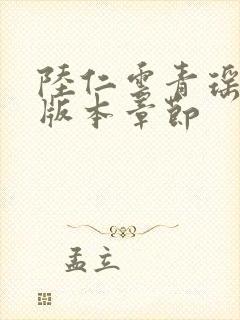 陸仁雲青瑶
版本章節
孟立